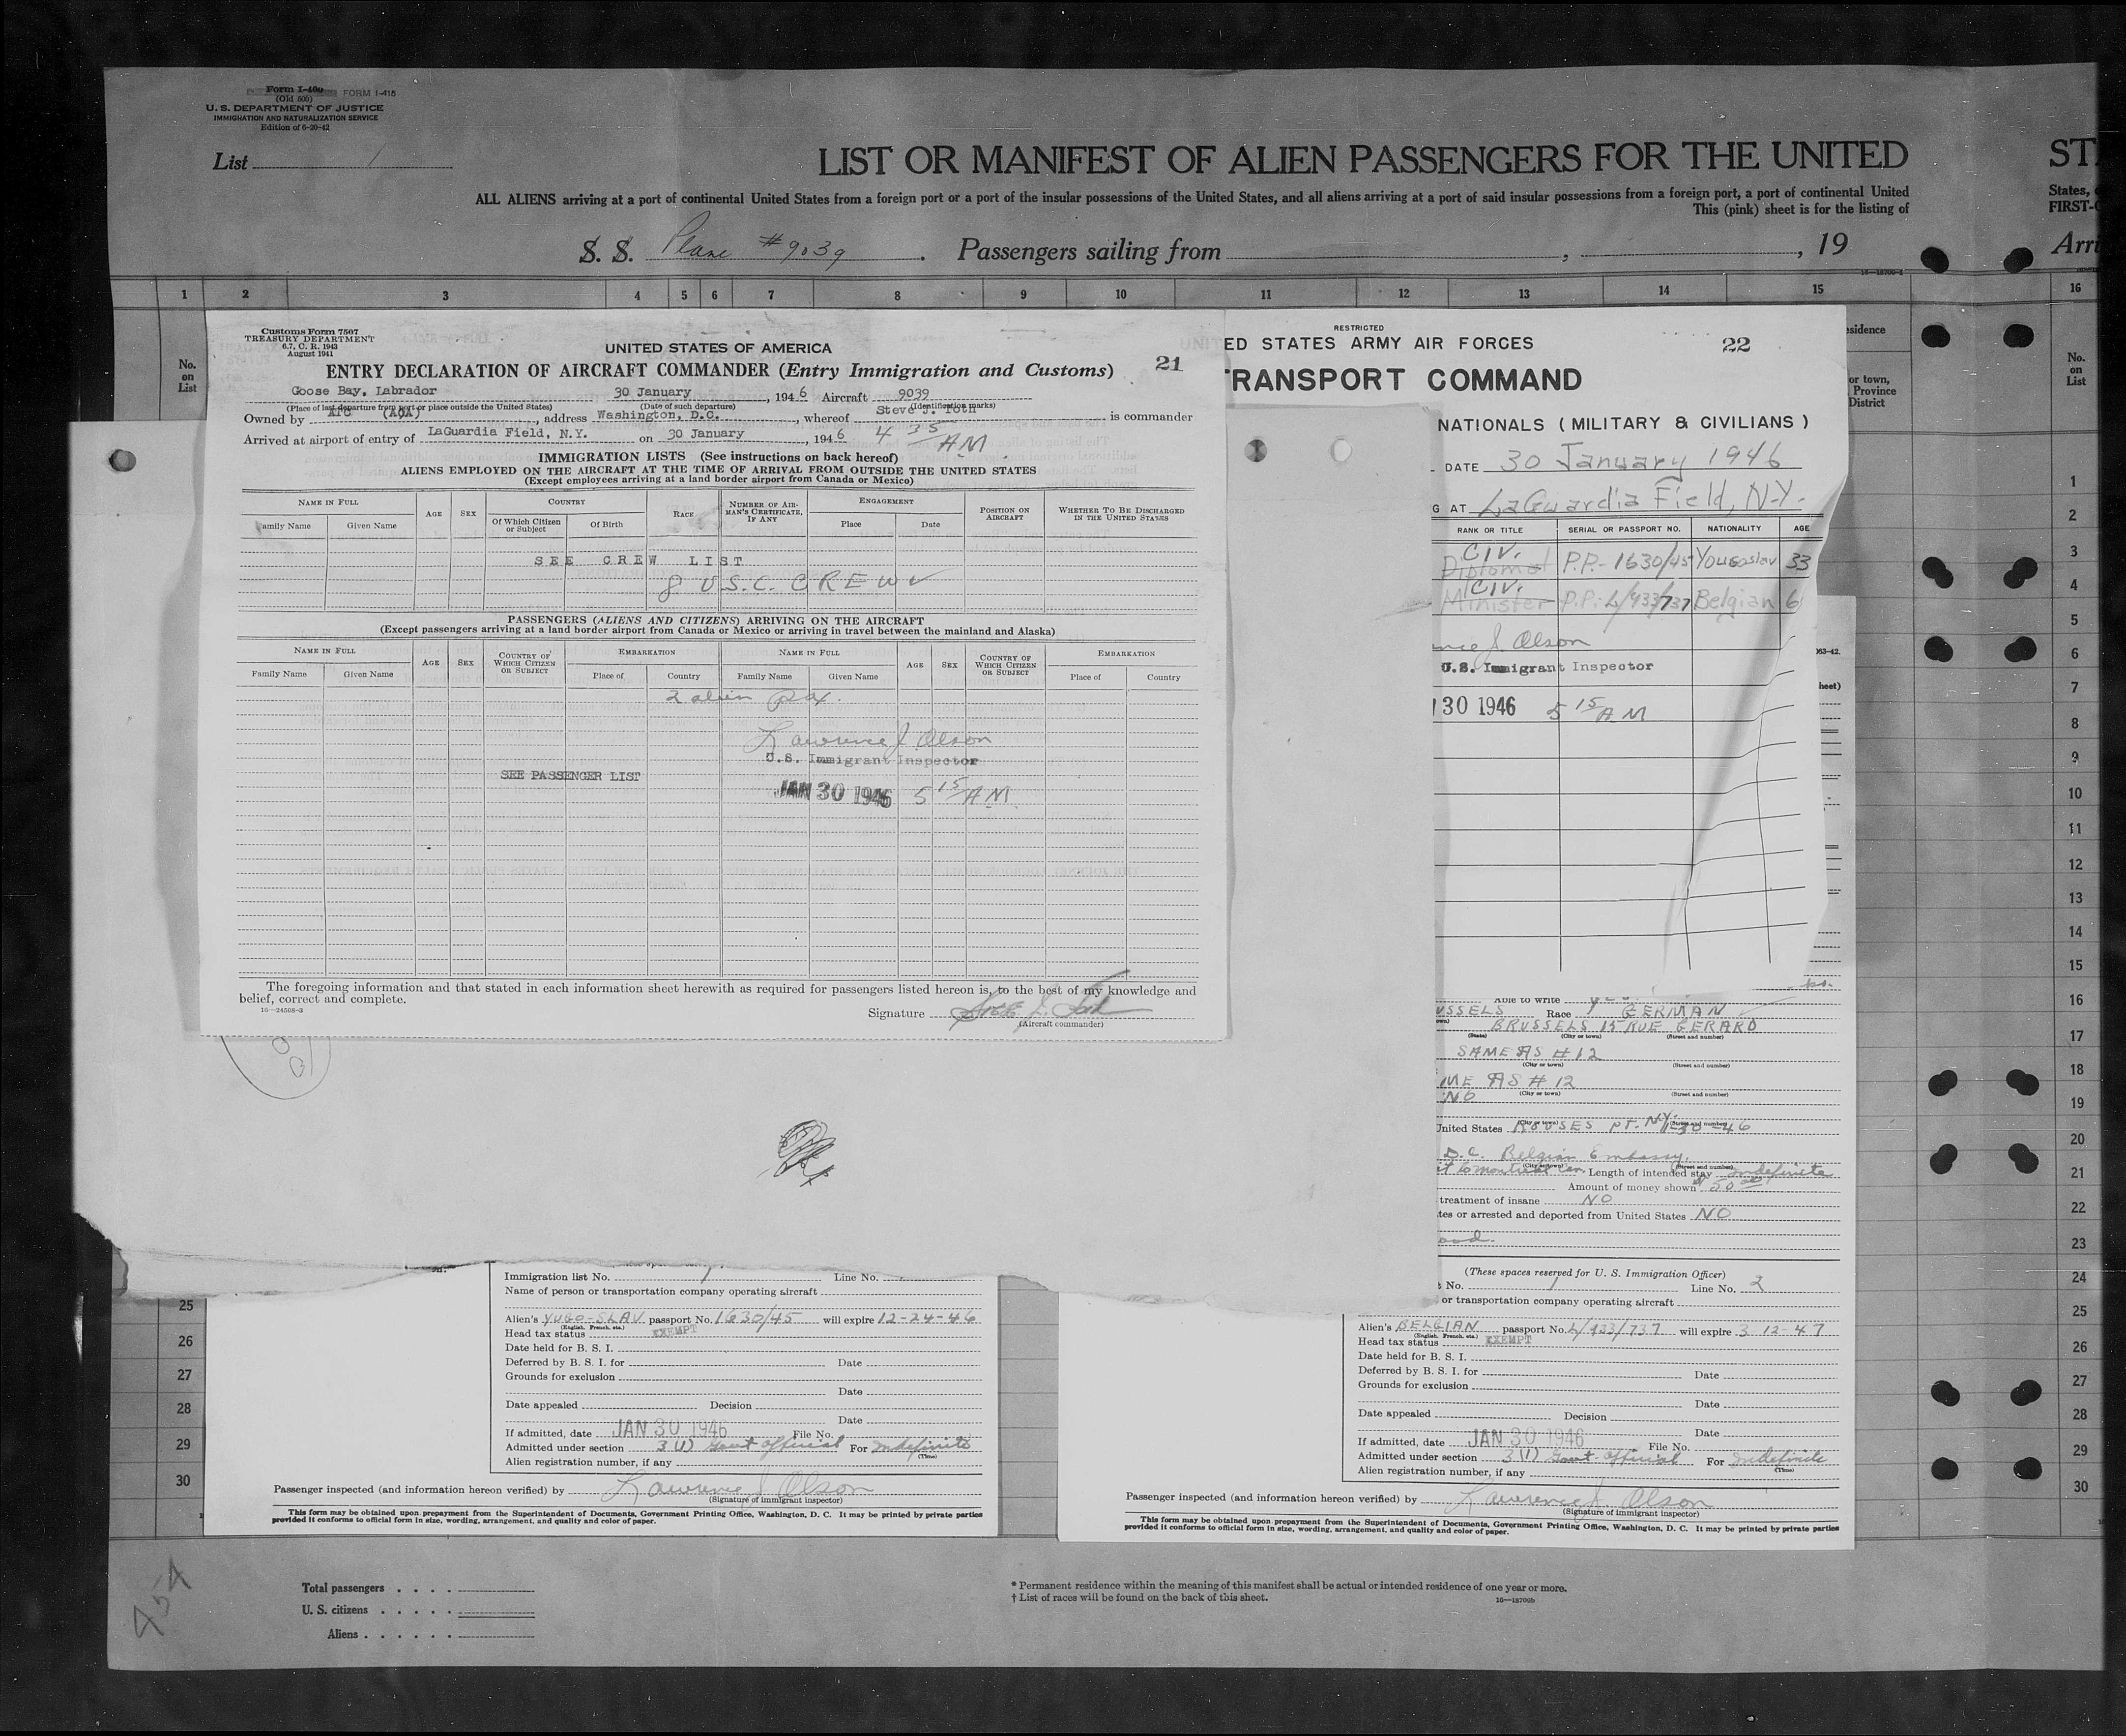 Form I-400 FORM I-415
(Old 500)
U. S. DEPARTMENT OF JUSTICE
IMMIGRATION AND NATURALIZATION SERVICE
Edition of 6-20-42
List 1
LIST OR MANIFEST OF ALIEN PASSENGERS FOR THE UNITED
ST
ALL ALIENS arriving at a port of continental United States from a foreign port or a port of the insular possessions of the United States, and all aliens arriving at a port of said insular possessions from a foreign port, a port of continental United
States,
This (pink) sheet is for the listing of
FIRST-
S. S. Plane #9039. Passengers sailing from , , 19
Arri
1 2 3 4 5 6 7 8 9 10 11 12 13 14 15 16
No. on List
Customs Form 7507
TREASURY DEPARTMENT
6.7, C. R. 1943
August 1941
UNITED STATES OF AMERICA
21
ENTRY DECLARATION OF AIRCRAFT COMMANDER (Entry Immigration and Customs)
Goose Bay, Labrador 30 January, 1946 Aircraft 9039
(Place of last departure from port or place outside the United States) (Date of such departure) (Identification marks)
Owned by ATC (AOA), address Washington, D.C., whereof Steve J. Toth is commander
Arrived at airport of entry of LaGuardia Field, N.Y. on 30 January, 1946 4 35 AM
IMMIGRATION LISTS (See instructions on back hereof)
ALIENS EMPLOYED ON THE AIRCRAFT AT THE TIME OF ARRIVAL FROM OUTSIDE THE UNITED STATES
(Except employees arriving at a land border airport from Canada or Mexico)
NAME IN FULL AGE SEX COUNTRY RACE NUMBER OF AIRMAN'S CERTIFICATE, IF ANY ENGAGEMENT POSITION ON AIRCRAFT WHETHER TO BE DISCHARGED IN THE UNITED STATES
Family Name Given Name Of Which Citizen or Subject Of Birth Place Date
SEE CREW LIST
8 U.S.C. CREW
PASSENGERS (ALIENS AND CITIZENS) ARRIVING ON THE AIRCRAFT
(Except passengers arriving at a land border airport from Canada or Mexico or arriving in travel between the mainland and Alaska)
NAME IN FULL AGE SEX COUNTRY OF WHICH CITIZEN OR SUBJECT EMBARKATION NAME IN FULL AGE SEX COUNTRY OF WHICH CITIZEN OR SUBJECT EMBARKATION
Family Name Given Name Place of Country Family Name Given Name Place of Country
2 alien pax.
Lawrence J. Olson
U.S. Immigrant Inspector
SEE PASSENGER LIST
JAN 30 1946 5 15 AM
The foregoing information and that stated in each information sheet herewith as required for passengers listed hereon is, to the best of my knowledge and
belief, correct and complete.
16—24508-3
Signature Steve J. Toth
(Aircraft commander)
RESTRICTED
ED STATES ARMY AIR FORCES
22
RANSPORT COMMAND
NATIONALS (MILITARY & CIVILIANS)
DATE 30 January 1946
G AT LaGuardia Field, N.Y.
RANK OR TITLE SERIAL OR PASSPORT NO. NATIONALITY AGE
CIV.
Diplomat P.P.- 1630/45 Yougoslav 33
CIV.
Minister P.P.: L/933/737 Belgian 6
nce J. Olson
U.S. Immigrant Inspector
30 1946 5 15 AM
sidence
or town,
Province
District
63-42.
heet)
Able to write yes
USSELS Race GERMAN
BRUSSELS 15 RUE GERARD
(State) (City or town) (Street and number)
SAME AS #12
(City or town) (Street and number)
ME AS #12
NO (City or town) (Street and number)
United States ROUSES PT. N.Y. 1-30-46
D.C. Belgian Embassy.
it to montreal can. Length of intended stay indefinite
Amount of money shown $50
treatment of insane NO
tes or arrested and deported from United States NO
ood.
(These spaces reserved for U. S. Immigration Officer)
t No. 1 Line No. 2
or transportation company operating aircraft
Alien's BELGIAN passport No. L/933/737 will expire 3 12-47
(English, French, etc.)
Head tax status EXEMPT
Date held for B. S. I.
Deferred by B. S. I. for Date
Grounds for exclusion
Date
Date appealed Decision
Date
If admitted, date JAN 30 1946 File No.
Admitted under section 3 (1) Govt. official For Indefinite
(Time)
Alien registration number, if any
Passenger inspected (and information hereon verified) by Lawrence J. Olson
(Signature of immigrant inspector)
This form may be obtained upon prepayment from the Superintendent of Documents, Government Printing Office, Washington, D. C. It may be printed by private parties
provided it conforms to official form in size, wording, arrangement, and quality and color of paper.
Immigration list No. 1 Line No.
Name of person or transportation company operating aircraft
Alien's YUGO-SLAV passport No. 1630/45 will expire 12-24-46
(English, French, etc.)
Head tax status EXEMPT
Date held for B. S. I.
Deferred by B. S. I. for Date
Grounds for exclusion
Date
Date appealed Decision
Date
If admitted, date JAN 30 1946 File No.
Admitted under section 3 (1) Govt official For Indefinite
(Time)
Alien registration number, if any
Passenger inspected (and information hereon verified) by Lawrence J. Olson
(Signature of immigrant inspector)
This form may be obtained upon prepayment from the Superintendent of Documents, Government Printing Office, Washington, D. C. It may be printed by private parties
provided it conforms to official form in size, wording, arrangement, and quality and color of paper.
25
26
27
28
29
30
No. on List
1
2
3
4
5
6
7
8
9
10
11
12
13
14
15
16
17
18
19
20
21
22
23
24
25
26
27
28
29
30
Total passengers
U. S. citizens
Aliens
* Permanent residence within the meaning of this manifest shall be actual or intended residence of one year or more.
† List of races will be found on the back of this sheet.
16—18700b